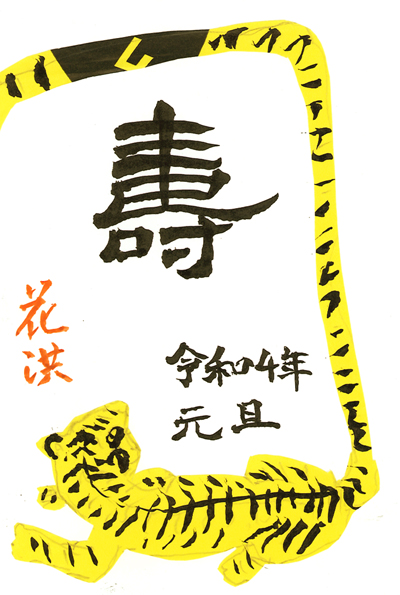 壽
令和4年
元旦
花洪